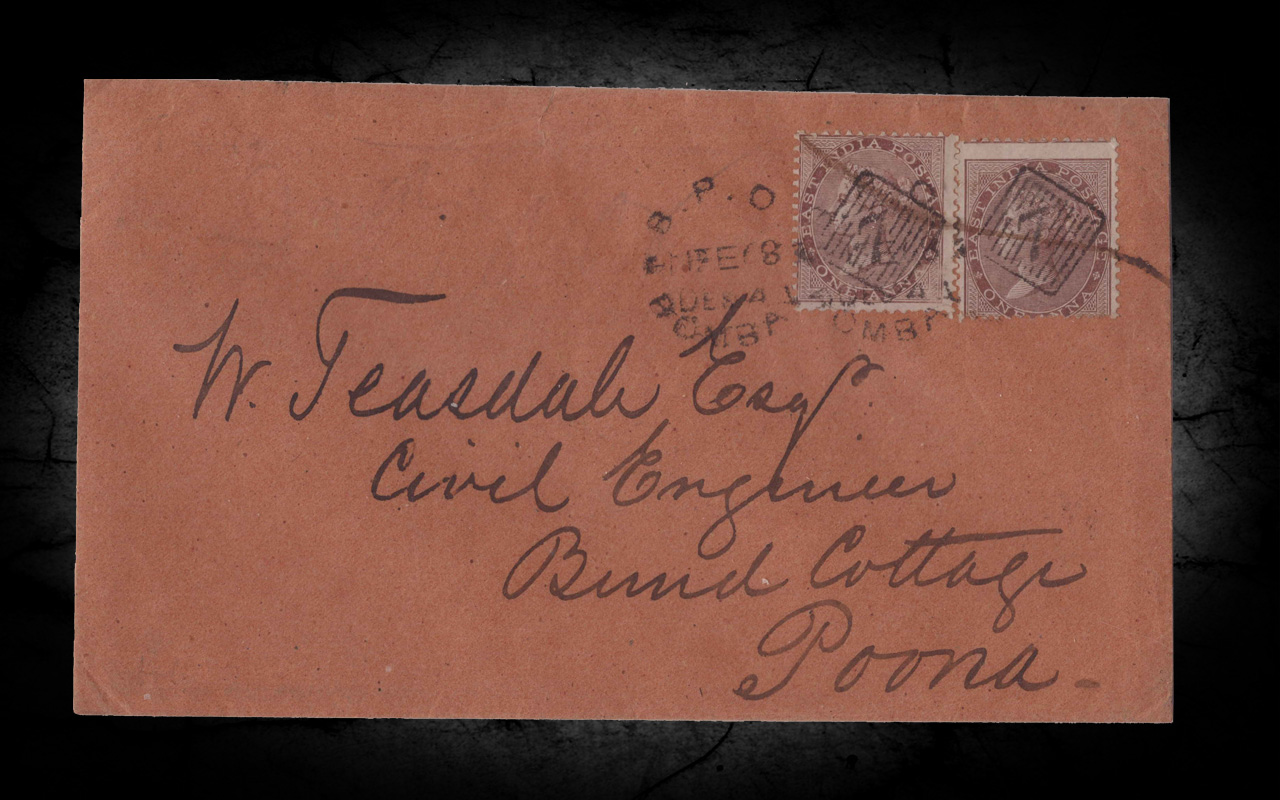 EAST INDIA POSTAGE
ONE ANNA
EAST INDIA POSTAGE
ONE ANNA
B.P.O
1
1
W. Teasdale Esqr.
Civil Engineer
Bund Cottage
Poona.